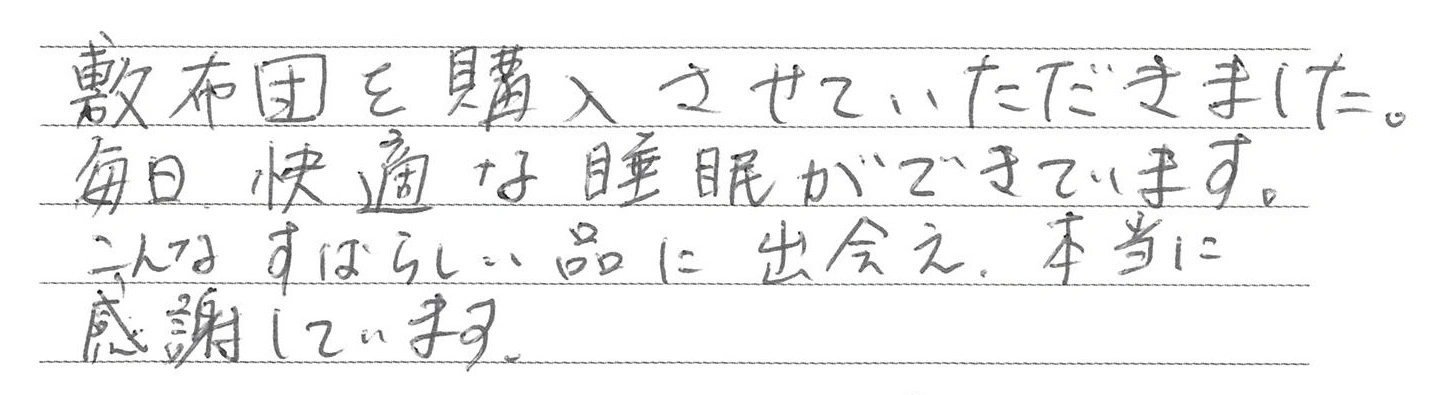 敷布団を購入させていただきました。
毎日快適な睡眠ができています。
こんなすばらしい品に出会え、本当に
感謝しています。